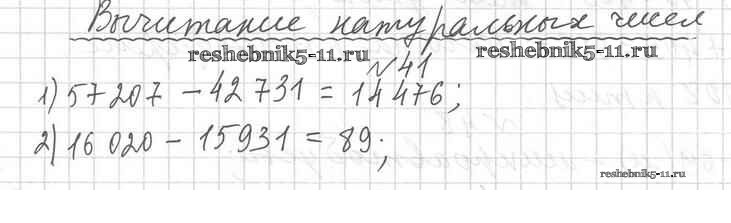 Вычитание натуральных чисел
reshebnik5-11.ru reshebnik5-11.ru
№41
1) 57 207 - 42 731 = 14 476;
2) 16 020 - 15931 = 89;
reshebnik5-11.ru